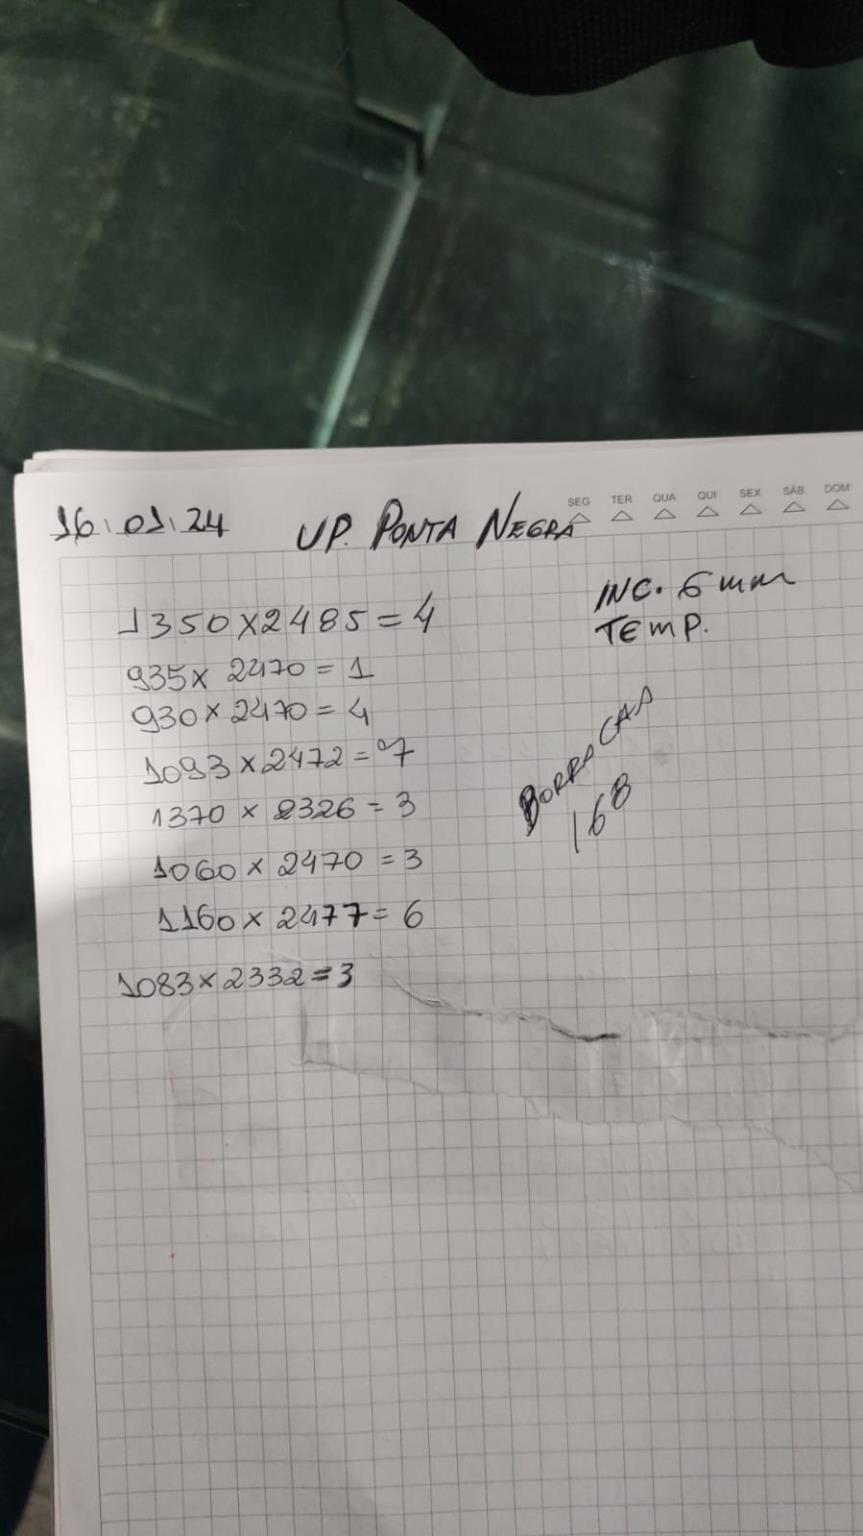 16.01.24 UP. PONTA NEGRA
SEG TER QUA QUI SEX SÁB DOM
1350x2485=4
935x 2470=1
930x2470=4
1093x2472=7
1370x2326=3
1060x2470=3
1160x2477=6
1083x2332=3
INC. 6mm
TEMP.
168